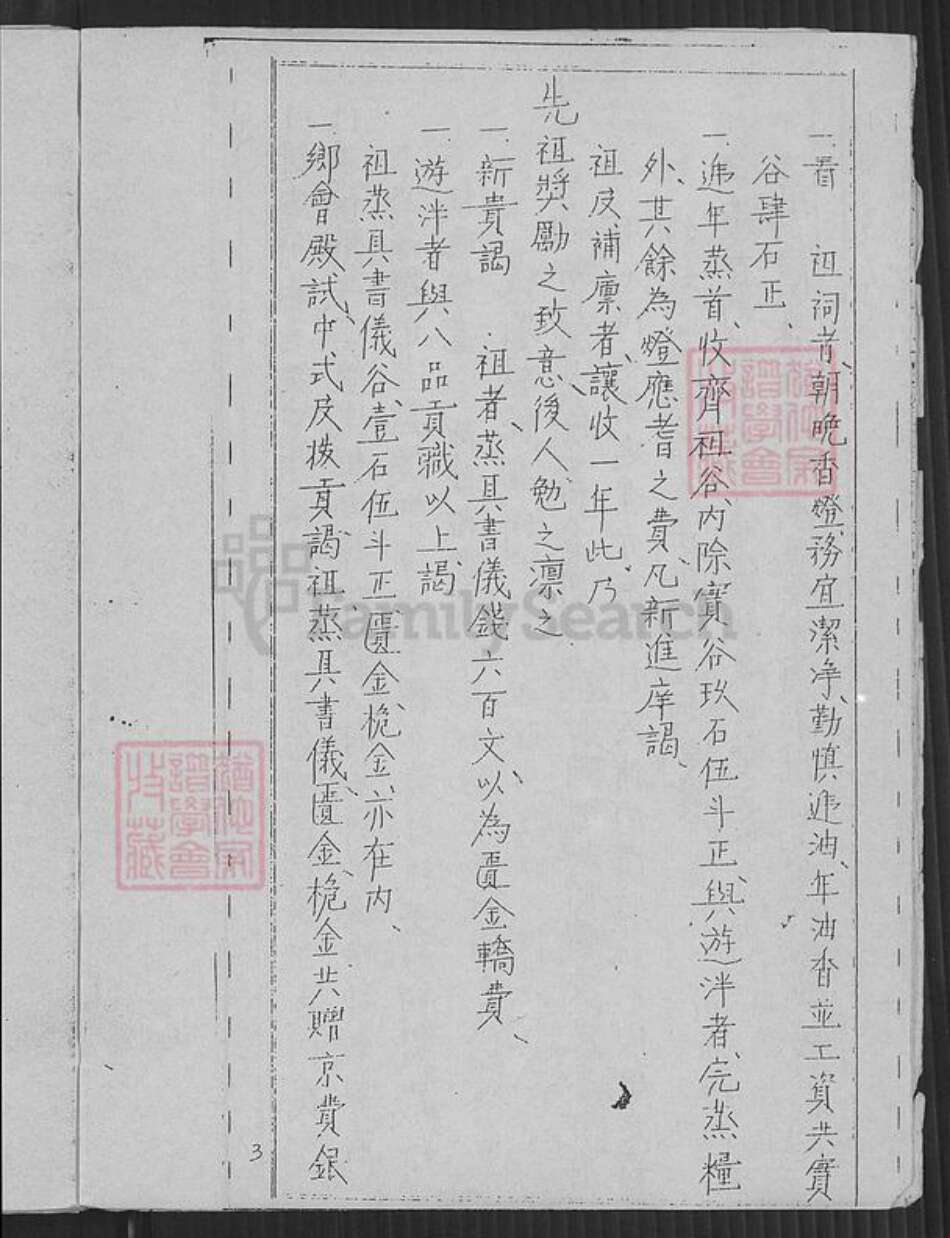 一看　祖祠者、朝晚香燈、務宜潔净、勤慎遞油、年油香並工資共實
谷肆石正、
一、遞年蒸首、收齊祖谷、内除實谷玖石伍斗正、與遊泮者、完蒸糧
外、其餘為燈應耆之費、凡新進庠謁、
祖及補廩者、讓收一年此乃
先祖獎勵之致意、後人勉之凛之
一新貴謁　祖者、蒸具書儀錢六百文、以為匾金轎費、
一遊泮者與八品貢職以上謁
祖蒸具書儀谷、壹石伍斗正、匾金、桅金、亦在内、
一鄉會殿試、中式及拔貢、謁祖蒸具書儀、匾金、桅金共贈京費銀
3
譜學會
收藏
譜學會
收藏
FamilySearch